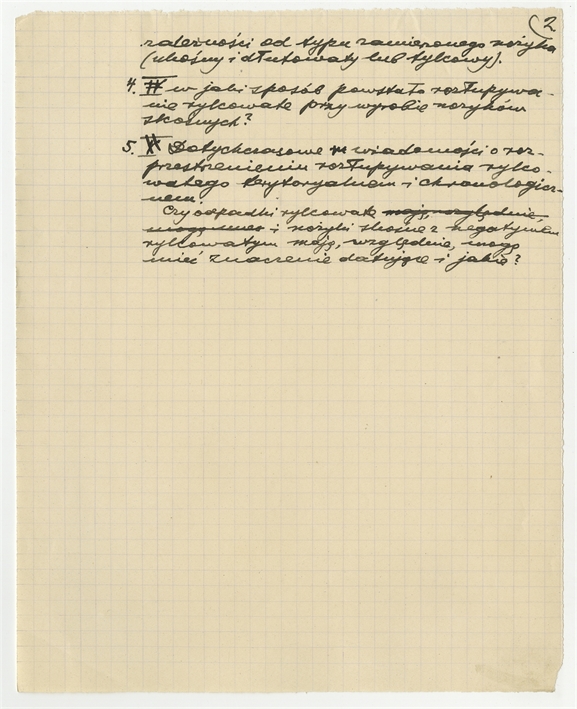 (2
zależności od typu zamierzonego nożyka
(ukośny i dłutowaty lub tylcowy).
4. w jaki sposób powstało rozłupywa-
nie rylcowate przy wyrobie nożyków
skośnych?
5. Dotychczasowe wiadomości o roz-
przestrzenieniu rozłupywania rylco-
watego terytorialnem i chronologicz-
nem.
Czy odpadki rylcowate mają, względnie,
mogą mieć i nożyki skośne z negatywem
rylcowatym mają, względnie, mogą
mieć znaczenie datujące i jakie?